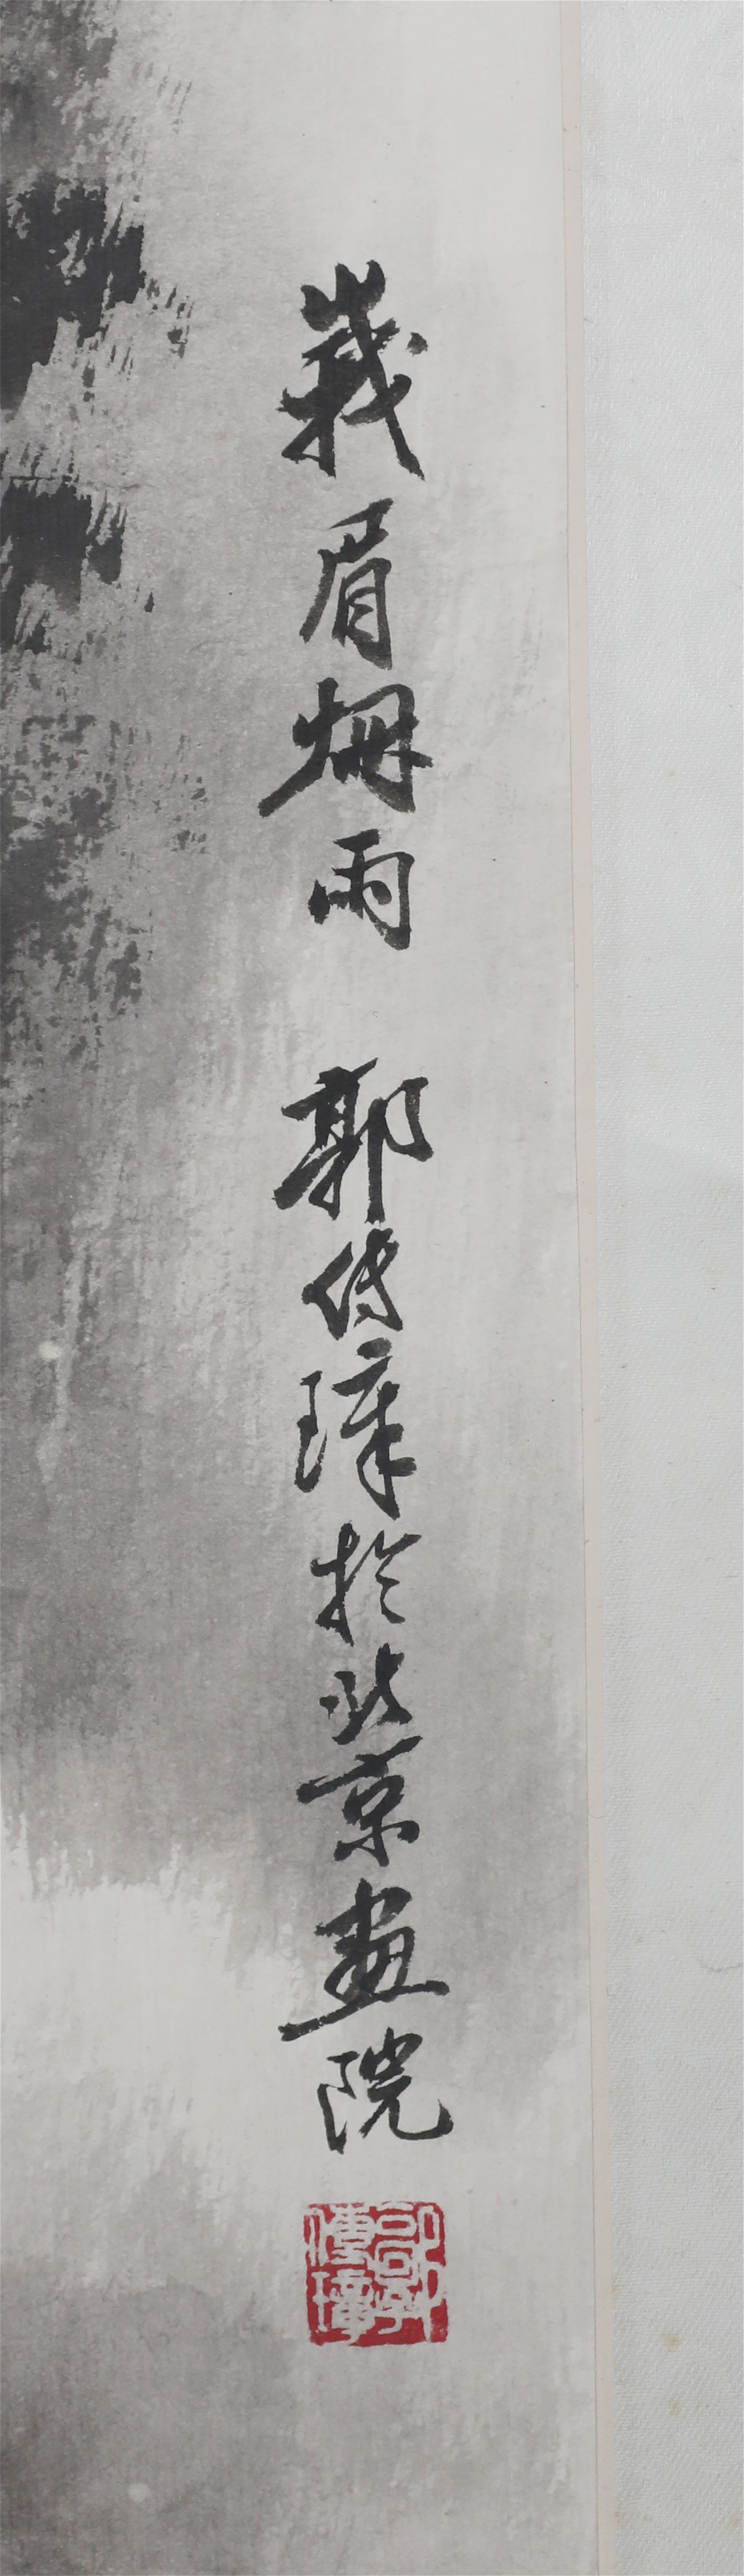 峩眉烟雨 郭傳璋於北京畫院
郭傳璋